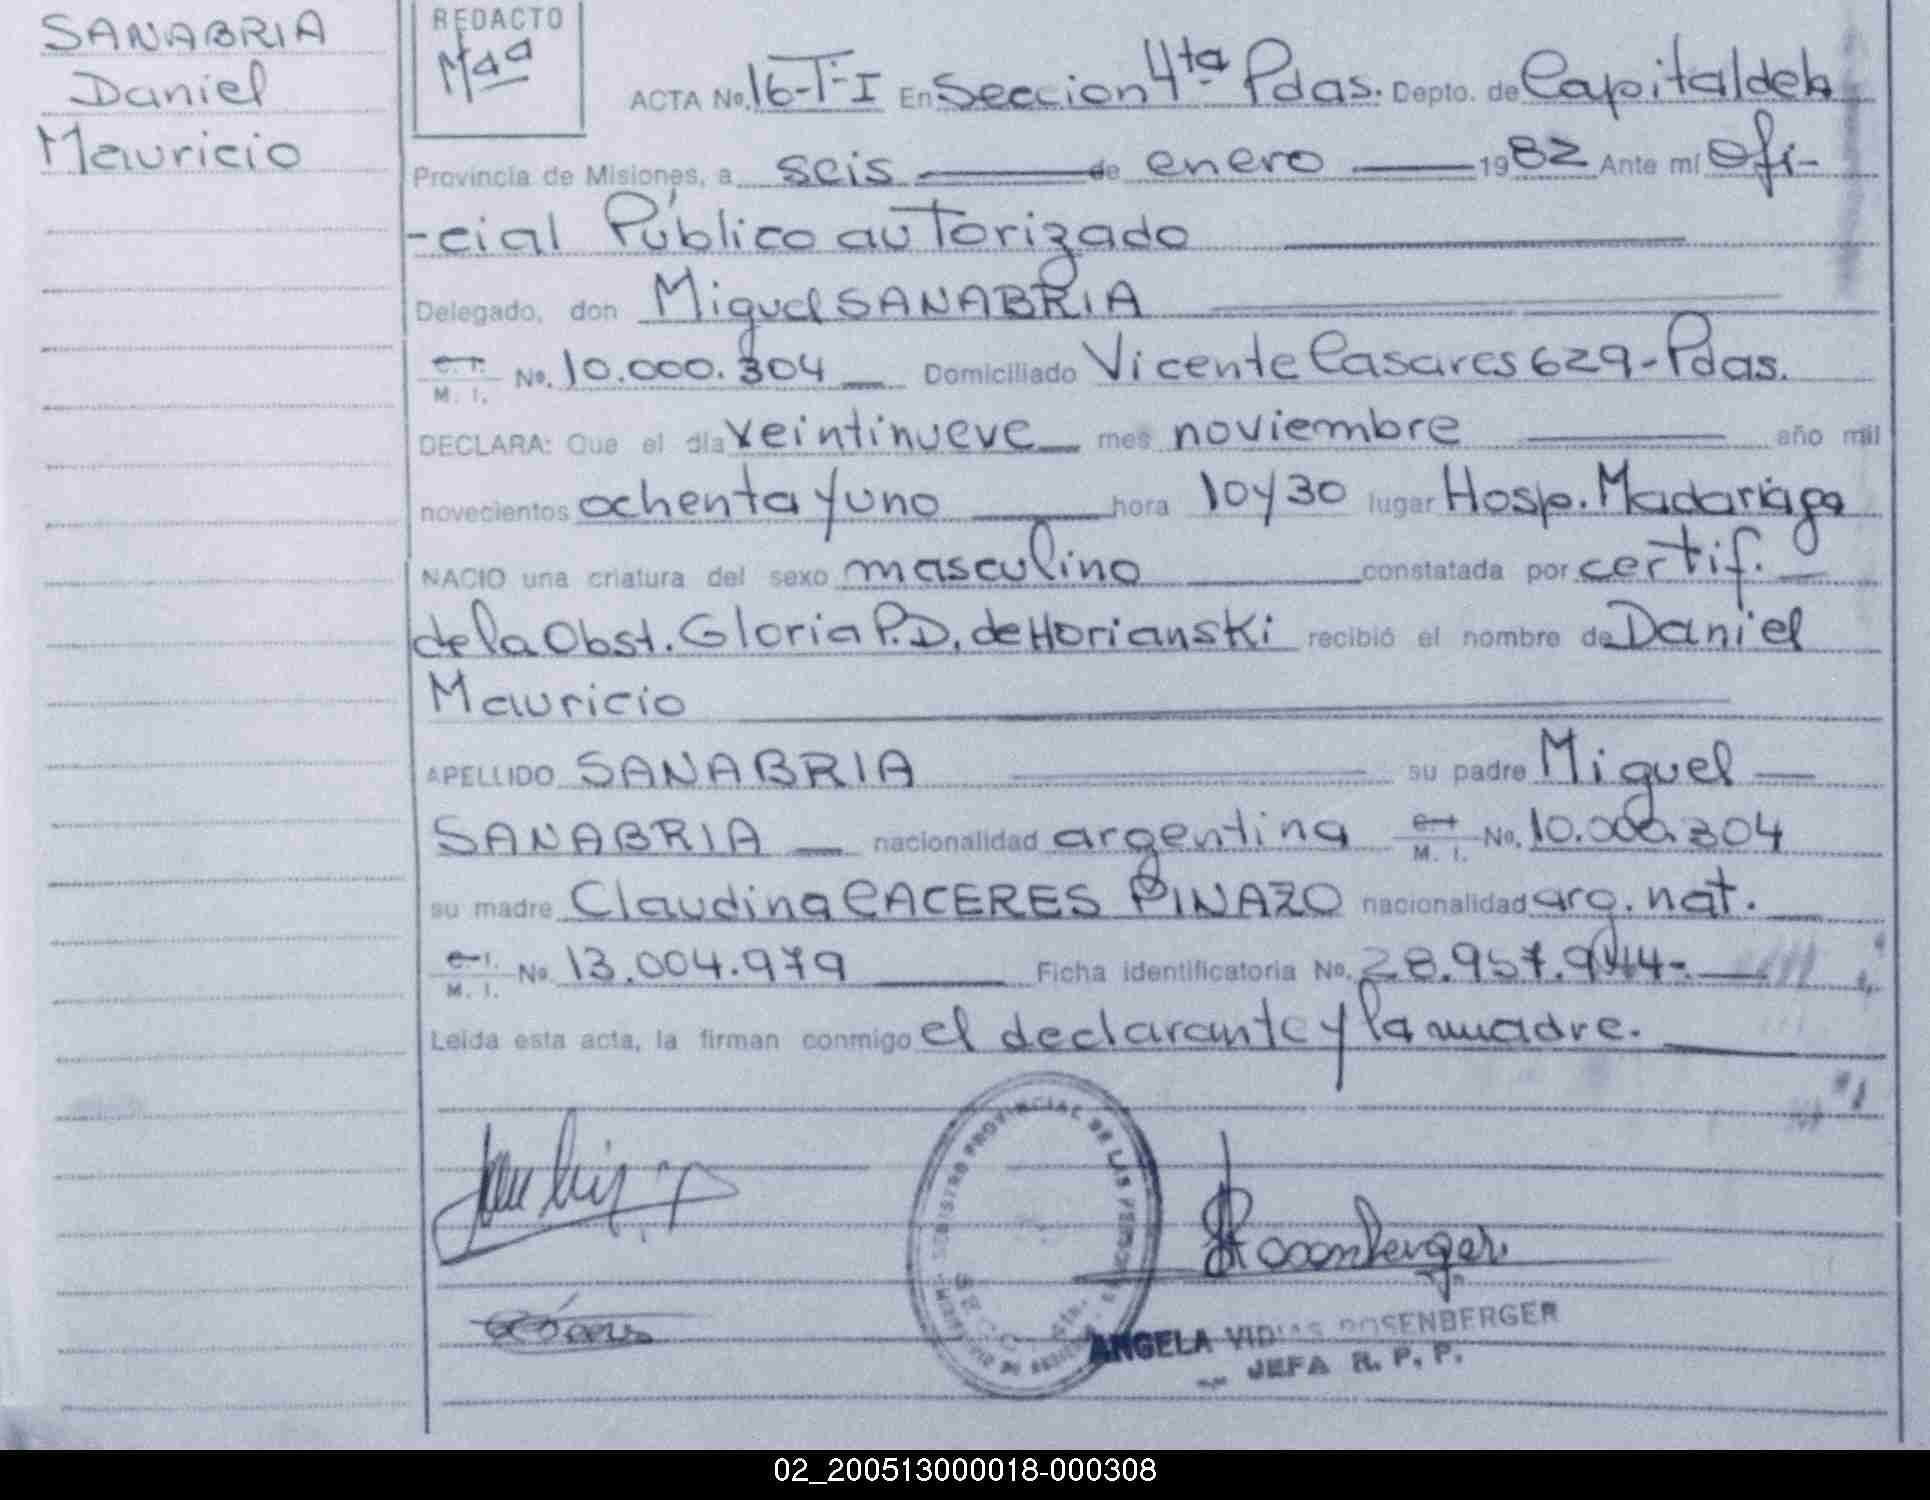 SANABRIA
Daniel
Mauricio
REDACTO
Mªª
ACTA No. 16-T-I En Seccion 4ta Pdas. Depto. de Capital de la
Provincia de Misiones, a seis de enero 1982 Ante mí Ofi-
-cial Público autorizado
Delegado, don Miguel SANABRIA
C. I. M. I. No. 10.000.304 Domiciliado Vicente Casares 629-Pdas.
DECLARA: Que el día veintinueve mes noviembre año mil
novecientos ochenta y uno hora 10 y 30 lugar Hosp. Madariaga
NACIO una criatura del sexo masculino constatada por certif.
de la Obst. Gloria P.D. de Horianski recibió el nombre de Daniel
Mauricio
APELLIDO SANABRIA su padre Miguel
SANABRIA nacionalidad argentina C. I. M. I. No. 10.000.304
su madre Claudina CACERES PINAZO nacionalidad arg. nat.
C. I. M. I. No. 13.004.979 Ficha identificatoria No. 28.957.944-
Leída esta acta, la firman conmigo el declarante y la madre.
REGISTRO PROVINCIAL DE LAS PERSONAS
SECC. 4ta.
ANGELA ROSENBERGER
JEFA R. P. P.
02_200513000018-000308